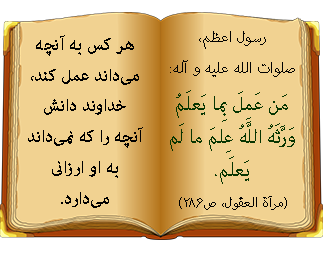 رسول اعظم،
صلوات الله علیه و آله:
مَن عَمِلَ بِما یَعلَمُ
وَرَّثَهُ اللَّهُ عِلمَ ما لَم
یَعلَم.
(مرآة العقول، ص۲۸۶)
هر کس به آنچه
می‌داند عمل کند،
خداوند دانش
آنچه را که نمی‌داند
به او ارزانی
می‌دارد.